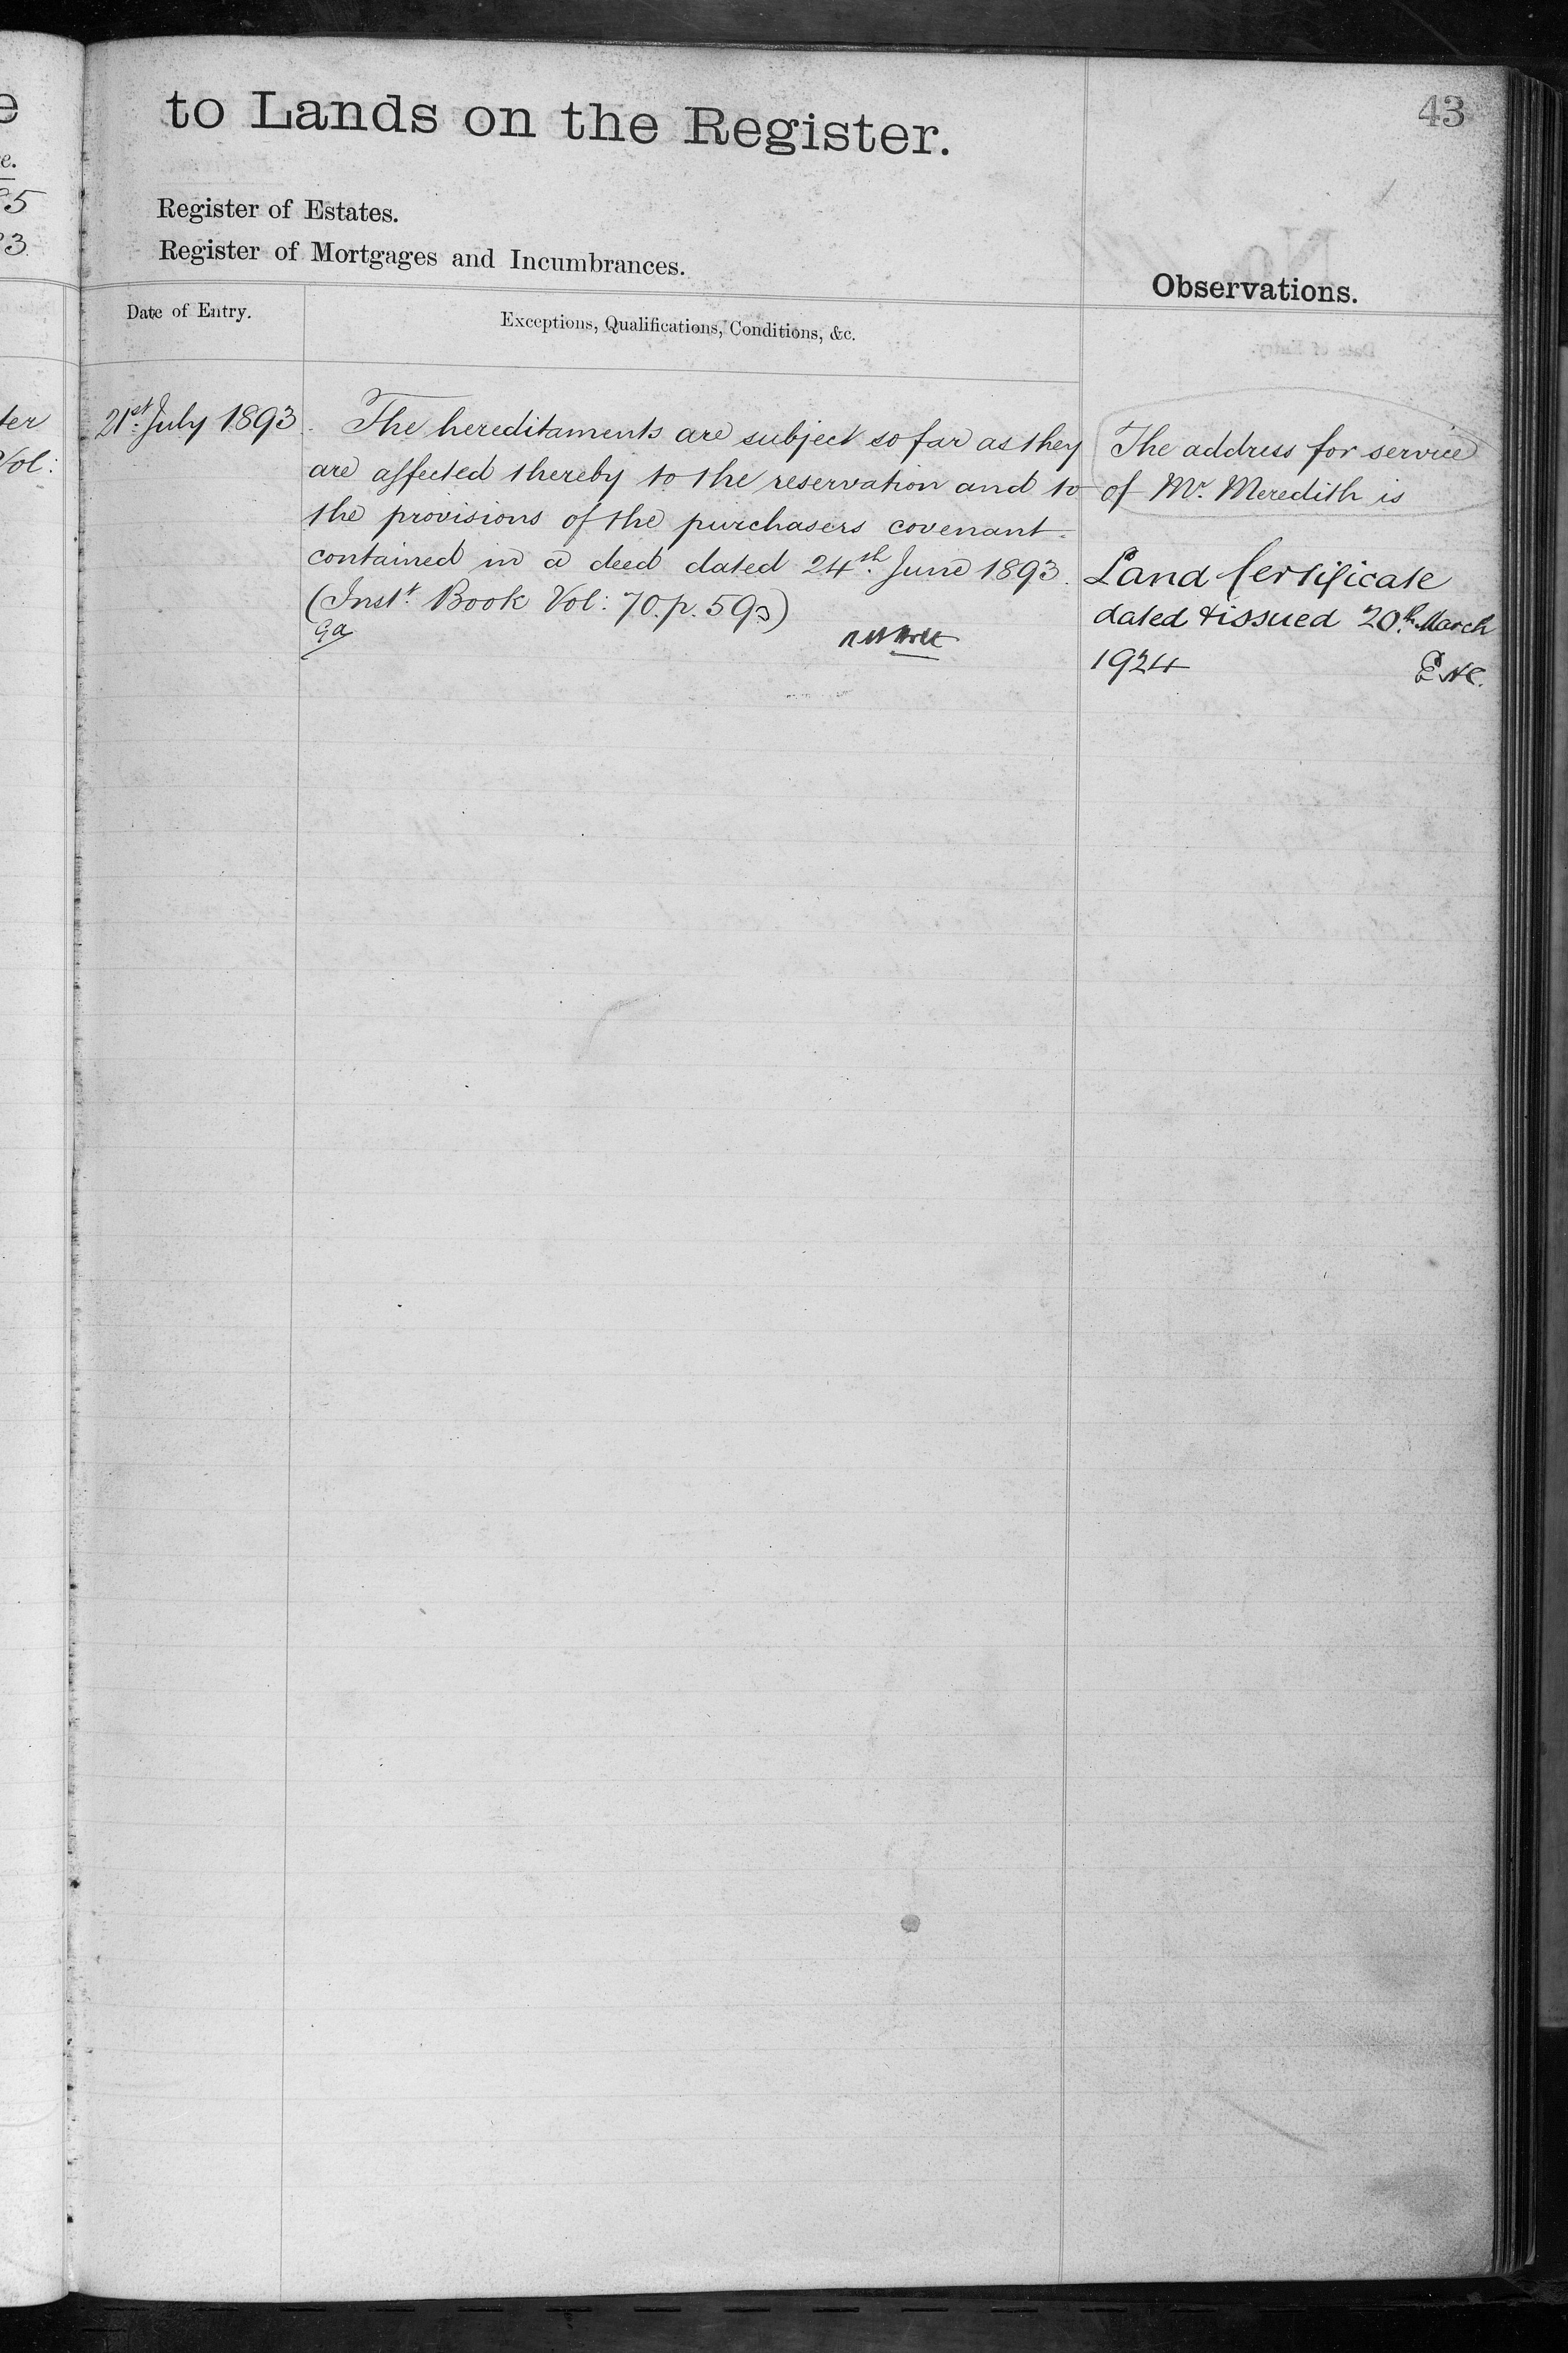 to Lands on the Register.
43
Register of Estates.
Register of Mortgages and Incumbrances.
Observations.
Date of Entry.
Exceptions, Qualifications, Conditions, &c.
21st July 1893.
The hereditaments are subject so far as they
are affected thereby to the reservation and to
the provisions of the purchasers covenant
contained in a deed dated 24th June 1893.
(Inst. Book Vol: 70. p. 593)
The address for service
of Mr. Meredith is
Land Certificate
dated & issued 20th March
1924
ter
Vol: